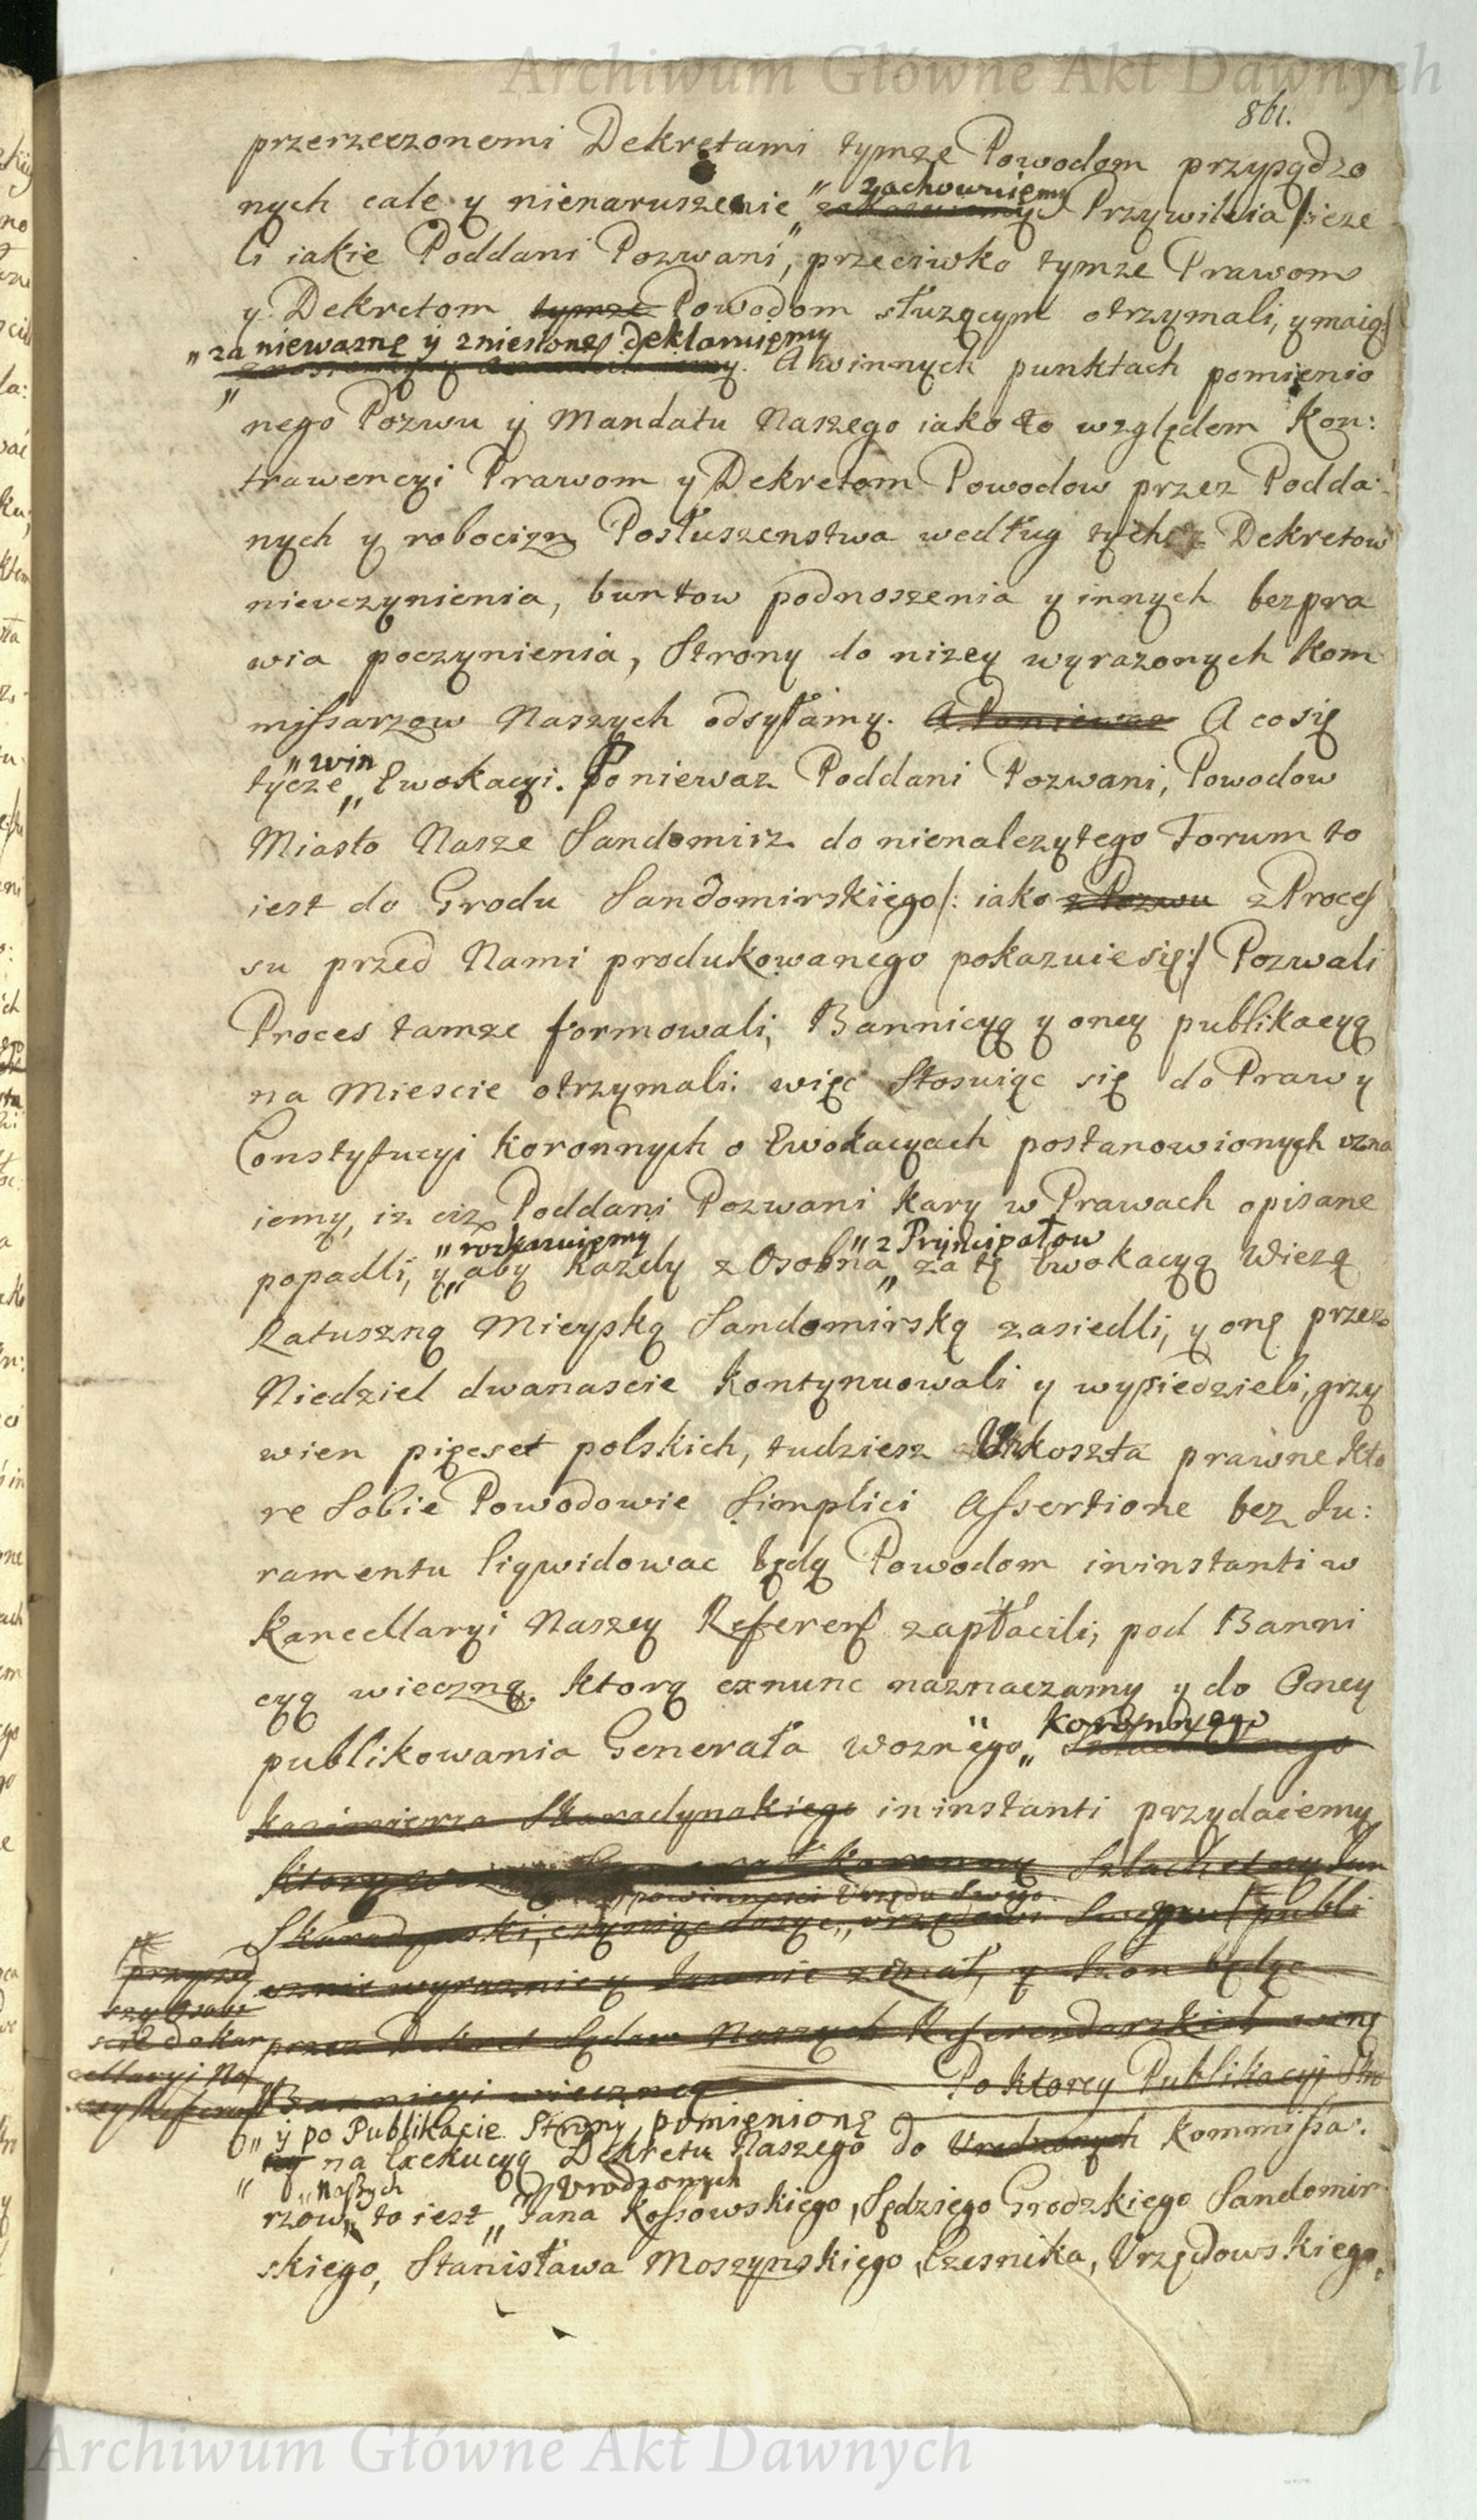 Archiwum Główne Akt Dawnych
861.
przerzeczonemi Dekretami tymze Powodom przysądzo
nych cale y nienaruszenie „ zachowuiemy Przywileia ieze
li iakie Poddani Pozwani, przeciwko tymze Prawom
y Dekretom tymze Powodom służącym otrzymali, y maią
„ za nieważne y zniesione deklaruiemy
A winnych punktach pomienio
nego Pozwu y Mandatu Naszego iako to względem Kon:
trawencyi Prawom y Dekretom Powodow przez Podda:
nych y robocizn Posłuszenstwa według tychz Dekretow
nieuczynienia, buntow podnoszenia y innych bezpra
wia poczynienia, Strony do nizey wyrazonych Kom
missarzow Naszych odsyłamy. A Poniewaz A co się
„ win
tycze „ Ewokacyi. Poniewaz Poddani Pozwani, Powodow
Miasto Nasze Sandomirz do nienalezytego Forum to
iest do Grodu Sandomirskiego /: iako z Pozwu z Proces
su przed Nami produkowanego pokazuie się :/ Pozwali
Proces tamze formowali, Bannicyą y oney publikacyą
na Miescie otrzymali: więc Stosuiąc się do Praw y
Constytucyi Koronnych o Ewokacyach postanowionych uzna
iemy, iz ciz Poddani Pozwani kary w Prawach opisane
„ rozkazuiemy „ z Pryncipałow
popadli, y „ aby kazdy z Osobna „ za tę Ewokacyą Wiezą
Ratuszną Mieyską Sandomirską zasiedli, y onę przez
Niedziel dwanascie kontynuowali y wysiedzieli, grzy
wien pięcset polskich, tudziesz Vkoszta prawne kto
re Sobie Powodowie Simplici Assertione bez Ju:
ramentu liqwidowac będą Powodom in instanti w
Kancellaryi Naszey Referen zapłacili, pod Banni
cyą wieczną, ktorą ex nunc naznaczamy y do Oney
Koronnego
publikowania Generała woznego „
Kazimierza Skaradynskiego in instanti przydaiemy
Ktory Koronny Szlachetny Jan
powinnosci Urzędu Swego
Skaradynski, czyniąc dosyc „ urzędowi Swemu publi
cznie wyraznie y Jawnie
przez Dekret Sądow Naszych Referendarskich winę
Bannicyi wieczney Po ktorey Publikacyi Stro
„ y po Publikacie Strony pomienione
ny na Exekucyą Dekretu Naszego do Urodzonych Kommissa:
„ Naszych Urodzonych
rzow „ to iest „ Jana Kossowskiego, Sędziego Grodzkiego Sandomir
skiego, Stanisława Moszynskiego Czesnika, Urzędowskiego,
Archiwum Główne Akt Dawnych